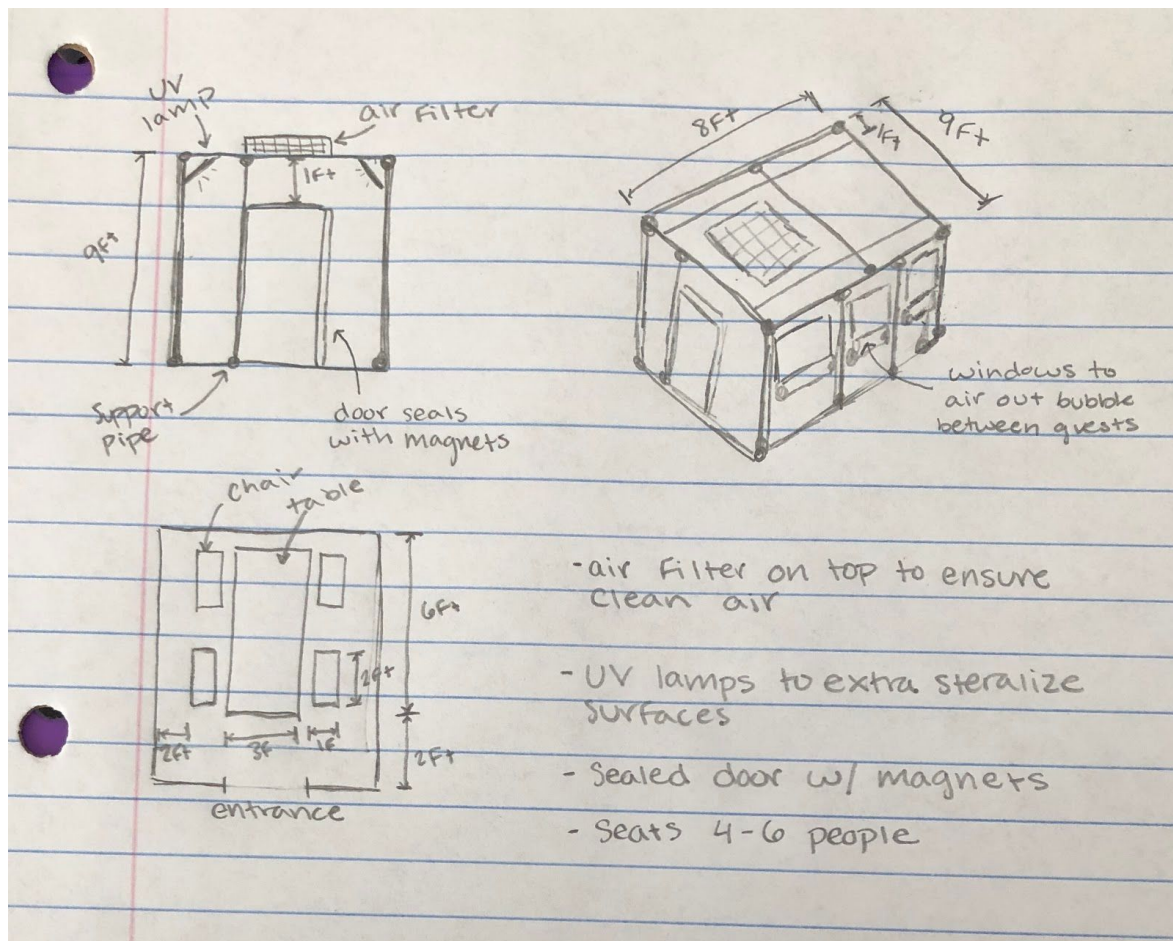 UV
lamp
air Filter
1Ft
9Ft
support
pipe
door seals
with magnets
8Ft
1Ft
9Ft
windows to
air out bubble
between guests
chair
table
6Ft
2Ft
2Ft
3F
1F
2Ft
entrance
-air Filter on top to ensure
clean air
- UV lamps to extra steralize
surfaces
- Sealed door w/ magnets
- Seats 4-6 people